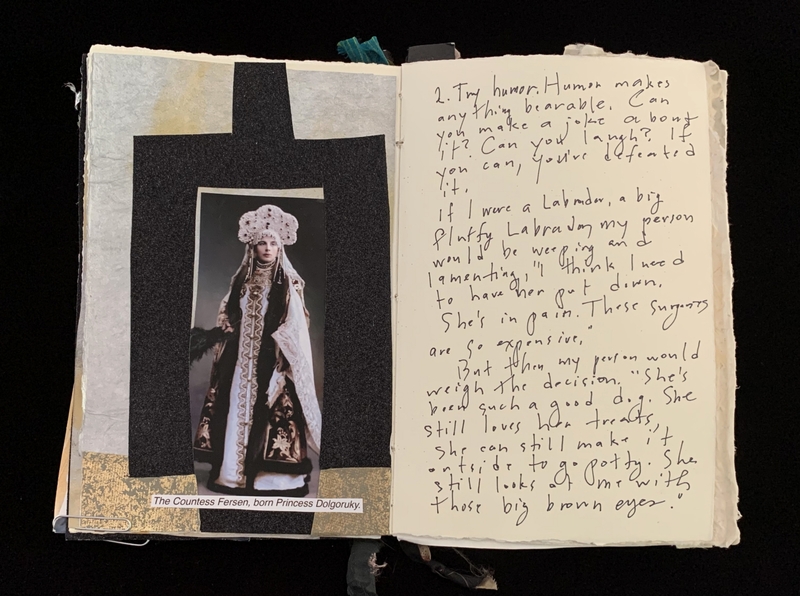 The Countess Fersen, born Princess Dolgoruky.
2. Try humor. Humor makes
anything bearable. Can
you make a joke about
it? Can you laugh? If
you can, you've defeated
it.
If I were a Labrador, a big
fluffy Labrador, my person
would be weeping and
lamenting, "I think I need
to have her put down.
She's in pain. These surgeries
are so expensive."
But then my person would
weigh the decision. "She's
been such a good dog. She
still loves her treats,
she can still make it
outside to go potty. She
still looks at me with
those big brown eyes."